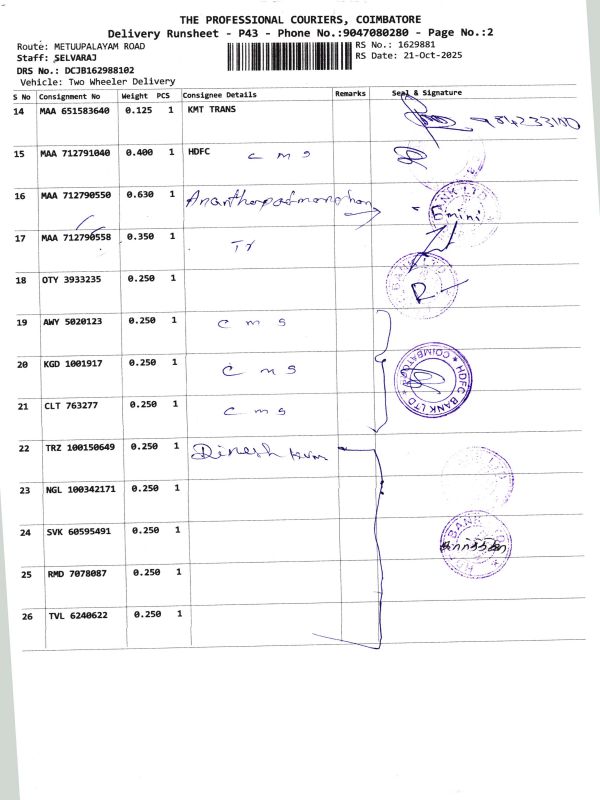 THE PROFESSIONAL COURIERS, COIMBATORE
Delivery Runsheet - P43 - Phone No.:9047080280 - Page No.:2
Route: METUUPALAYAM ROAD
RS No.: 1629881
Staff: SELVARAJ
RS Date: 21-Oct-2025
DRS No.: DCJB162988102
Vehicle: Two Wheeler Delivery
S No Consignment No Weight PCS Consignee Details Remarks Seal & Signature
14 MAA 651583640 0.125 1 KMT TRANS
15 MAA 712791040 0.400 1 HDFC cms
16 MAA 712790550 0.630 1 Emini
17 MAA 712790558 0.350 1
18 OTY 3933235 0.250 1 R
19 AWY 5020123 0.250 1 cms
20 KGD 1001917 0.250 1 cms
HDFC BANK LTD * COIMBATORE *
21 CLT 763277 0.250 1 cms
22 TRZ 100150649 0.250 1 Dinesh kum
23 NGL 100342171 0.250 1
24 SVK 60595491 0.250 1
25 RMD 7078087 0.250 1
26 TVL 6240622 0.250 1